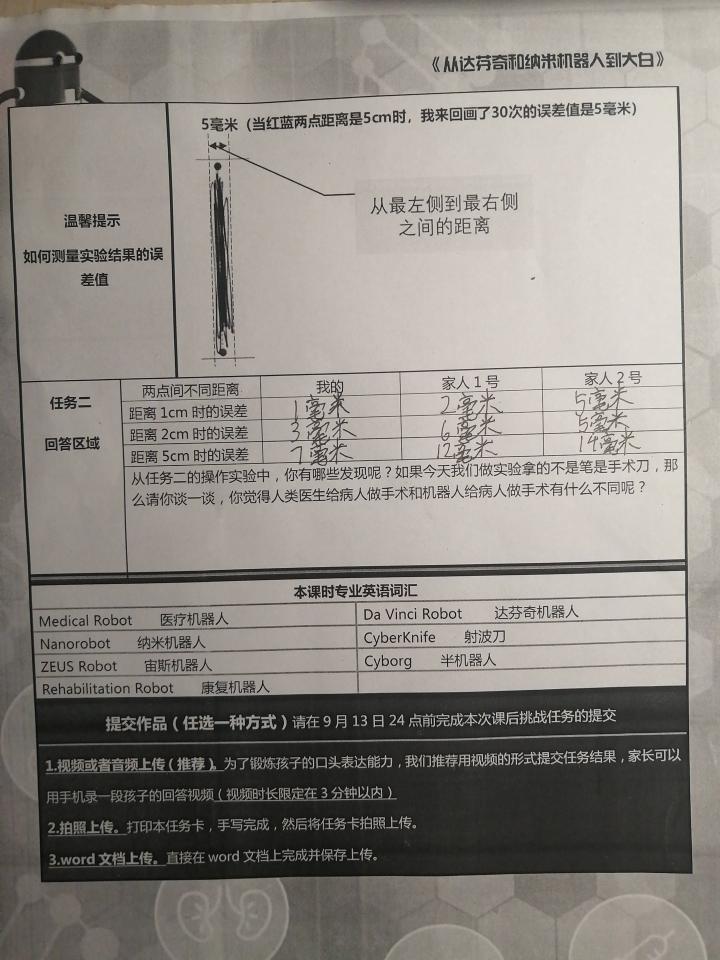 《从达芬奇和纳米机器人到大白》
5毫米（当红蓝两点距离是5cm时，我来回画了30次的误差值是5毫米）
从最左侧到最右侧
之间的距离
温馨提示
如何测量实验结果的误
差值
任务二
回答区域
两点间不同距离 我的 家人1号 家人2号
距离1cm时的误差 1毫米 2毫米 5毫米
距离2cm时的误差 3毫米 6毫米 5毫米
距离5cm时的误差 7毫米 12毫米 14毫米
从任务二的操作实验中，你有哪些发现呢？如果今天我们做实验拿的不是笔是手术刀，那
么请你谈一谈，你觉得人类医生给病人做手术和机器人给病人做手术有什么不同呢？
本课时专业英语词汇
Medical Robot 医疗机器人 Da Vinci Robot 达芬奇机器人
Nanorobot 纳米机器人 CyberKnife 射波刀
ZEUS Robot 宙斯机器人 Cyborg 半机器人
Rehabilitation Robot 康复机器人
提交作品（任选一种方式）请在9月13日24点前完成本次课后挑战任务的提交
1.视频或者音频上传（推荐）。为了锻炼孩子的口头表达能力，我们推荐用视频的形式提交任务结果，家长可以
用手机录一段孩子的回答视频（视频时长限定在3分钟以内）
2.拍照上传。打印本任务卡，手写完成，然后将任务卡拍照上传。
3.word文档上传。直接在word文档上完成并保存上传。